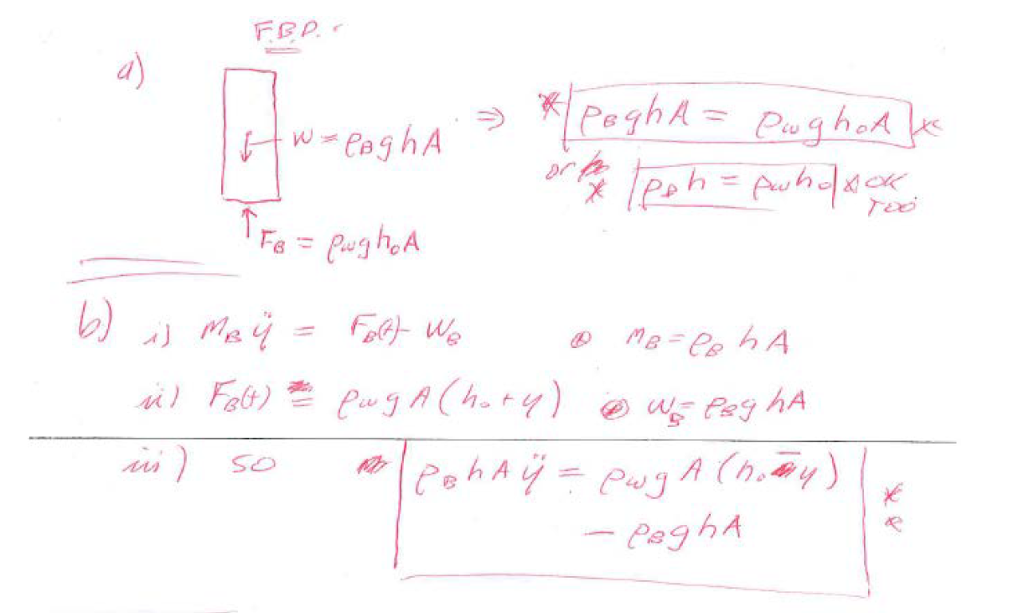 F.B.D.
a)
W = ρ_B g h A ⇒ * ρ_B g h A = ρ_w g h_o A *
or * ρ_B h = ρ_w h_o * OK TOO
F_B = ρ_w g h_o A
b) i) M_B ÿ = F_B(t) - W_B ⊙ M_B = ρ_B h A
ii) F_B(t) = ρ_w g A (h_o + y) ⊙ W_B = ρ_B g h A
iii) so ρ_B h A ÿ = ρ_w g A (h_o - y) *
- ρ_B g h A *